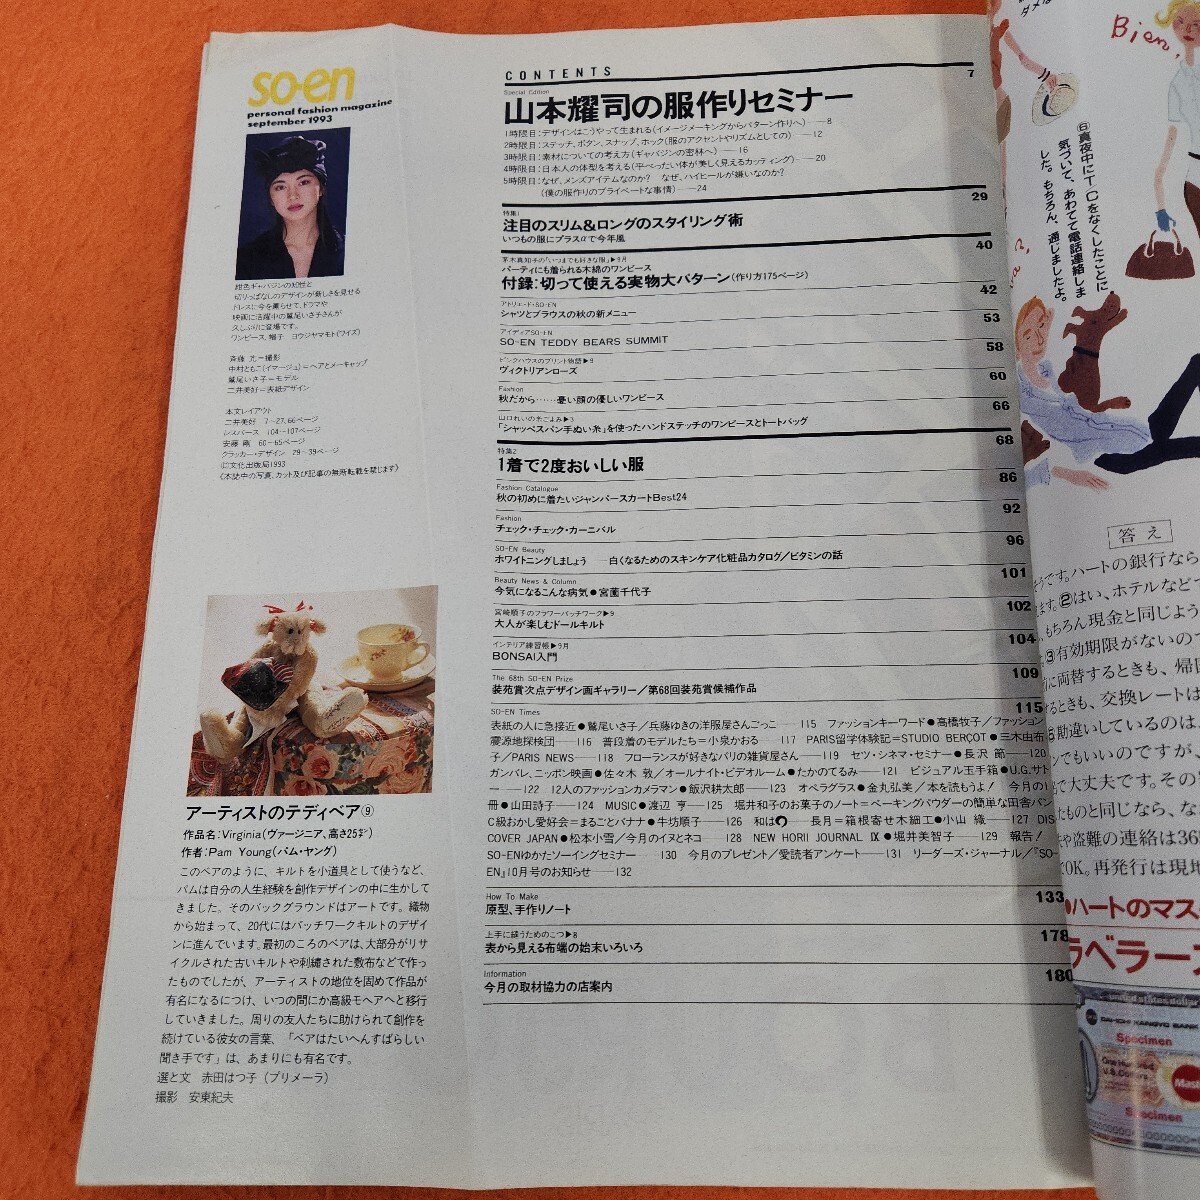 so-en
personal fashion magazine
september 1993
紺色ギャバジンの知性と
切りっぱなしのデザインが新しさを見せる
ドレスに今を薫らせて、ドラマや
映画に活躍中の鷲尾いさ子さんが
久しぶりに登場です。
ワンピース、帽子 ヨウジヤマモト(ワイズ)
斉藤 亢=撮影
中村ともこ(イマージュ)=ヘアとメーキャップ
鷲尾いさ子=モデル
二井美好=表紙デザイン
本文レイアウト
二井美好 7〜27,66ページ
レスパース 104〜107ページ
安藤 剛 60〜65ページ
クラッカー・デザイン 29〜39ページ
©文化出版局1993
《本誌中の写真、カット及び記事の無断転載を禁じます》
アーティストのテディベア⑨
作品名:Virginia(ヴァージニア、高さ25㌢)
作者:Pam Young(パム・ヤング)
このベアのように、キルトを小道具として使うなど、
パムは自分の人生経験を創作デザインの中に生かして
きました。そのバックグラウンドはアートです。織物
から始まって、20代にはパッチワークキルトのデザイ
ンに進んでいます。最初のころのベアは、大部分がリサ
イクルされた古いキルトや刺繍された敷布などで作っ
たものでしたが、アーティストの地位を固めて作品が
有名になるにつけ、いつの間にか高級モヘアへと移行
していきました。周りの友人たちに助けられて創作を
続けている彼女の言葉、「ベアはたいへんすばらしい
聞き手です」は、あまりにも有名です。
選と文 赤田はつ子(プリメーラ)
撮影 安東紀夫
CONTENTS
Special Edition
7
山本耀司の服作りセミナー
1時限目:デザインはこうやって生まれる(イメージメーキングからパターン作りへ)—8
2時限目:ステッチ、ボタン、スナップ、ホック(服のアクセントやリズムとしての)—12
3時限目:素材についての考え方(ギャバジンの密林へ)—16
4時限目:日本人の体型を考える(平べったい体が美しく見えるカッティング)—20
5時限目:なぜ、メンズアイテムなのか? なぜ、ハイヒールが嫌いなのか?
(僕の服作りのプライベートな事情)—24
特集1
29
注目のスリム&ロングのスタイリング術
いつもの服にプラスαで今年風
茅木真知子の「いつまでも好きな服」▶9月
40
パーティにも着られる木綿のワンピース
付録:切って使える実物大パターン(作り方175ページ)
アトリエ・ド・SO-EN
42
シャツとブラウスの秋の新メニュー
アイディアSO-EN
53
SO-EN TEDDY BEARS SUMMIT
ピンクハウスのプリント物語▶9
58
ヴィクトリアンローズ
Fashion
60
秋だから……憂い顔の優しいワンピース
山口れいの糸ごよみ▶3
66
「シャッペスパン手ぬい糸」を使ったハンドステッチのワンピースとトートバッグ
特集2
68
1着で2度おいしい服
Fashion Catalogue
86
秋の初めに着たいジャンパースカートBest24
Fashion
92
チェック・チェック・カーニバル
SO-EN Beauty
96
ホワイトニングしましょう—白くなるためのスキンケア化粧品カタログ/ビタミンの話
Beauty News & Column
101
今気になるこんな病気●宮薗千代子
宮崎順子のフラワーパッチワーク▶9
102
大人が楽しむドールキルト
インテリア練習帳▶9月
104
BONSAI入門
The 68th SO-EN Prize
109
装苑賞次点デザイン画ギャラリー/第68回装苑賞候補作品
SO-EN Times
115
表紙の人に急接近●鷲尾いさ子/兵藤ゆきの洋服屋さんごっこ—115 ファッションキーワード●高橋牧子/ファッション
震源地探検団—116 普段着のモデルたち=小泉かおる—117 PARIS留学体験記=STUDIO BERÇOT●三木由布
子/PARIS NEWS—118 フローランスが好きなパリの雑貨屋さん—119 セツ・シネマ・セミナー●長沢 節—120
ガンバレ、ニッポン映画●佐々木 敦/オールナイト・ビデオルーム●たかのてるみ—121 ビジュアル玉手箱●U.G.サト
ー—122 12人のファッションカメラマン●飯沢耕太郎—123 オペラグラス●金丸弘美/本を読もうよ! 今月の1
冊●山田詩子—124 MUSIC●渡辺 亨—125 堀井和子のお菓子のノート=ベーキングパウダーの簡単な田舎パン
C級おかし愛好会=まるごとバナナ●牛坊順子—126 和は 月—箱根寄せ木細工●小山 織—127 DIS
COVER JAPAN●松本小雪/今月のイヌとネコ—128 NEW HORII JOURNAL Ⅸ●堀井美智子—129 報告!
SO-ENゆかたソーイングセミナー—130 今月のプレゼント/愛読者アンケート—131 リーダーズ・ジャーナル/『SO-
EN』10月号のお知らせ—132
How To Make
133
原型、手作りノート
上手に縫うためのこつ▶8
178
表から見える布端の始末いろいろ
Information
180
今月の取材協力の店案内
ダメは
Bien,
⑥真夜中にT・Cをなくしたことに
気づいて、あわてて電話連絡しま
した。もちろん、通じましたよ。
答え
うです。ハートの銀行なら
ます。②はい、ホテルなど
もちろん現金と同じよう
③有効期限がないので
に両替するときも、帰国
するときも、交換レートは
勘違いしているのは、
ンでもいいのですが、
で大丈夫です。その
たものと同じなら、な
や盗難の連絡は365
OK。再発行は現地
●ハートのマス
ラベラーズ
united states dollar
DAI-ICHI KANGYO BANK
Specimen
One Hundred
U.S. Dollars
Specimen